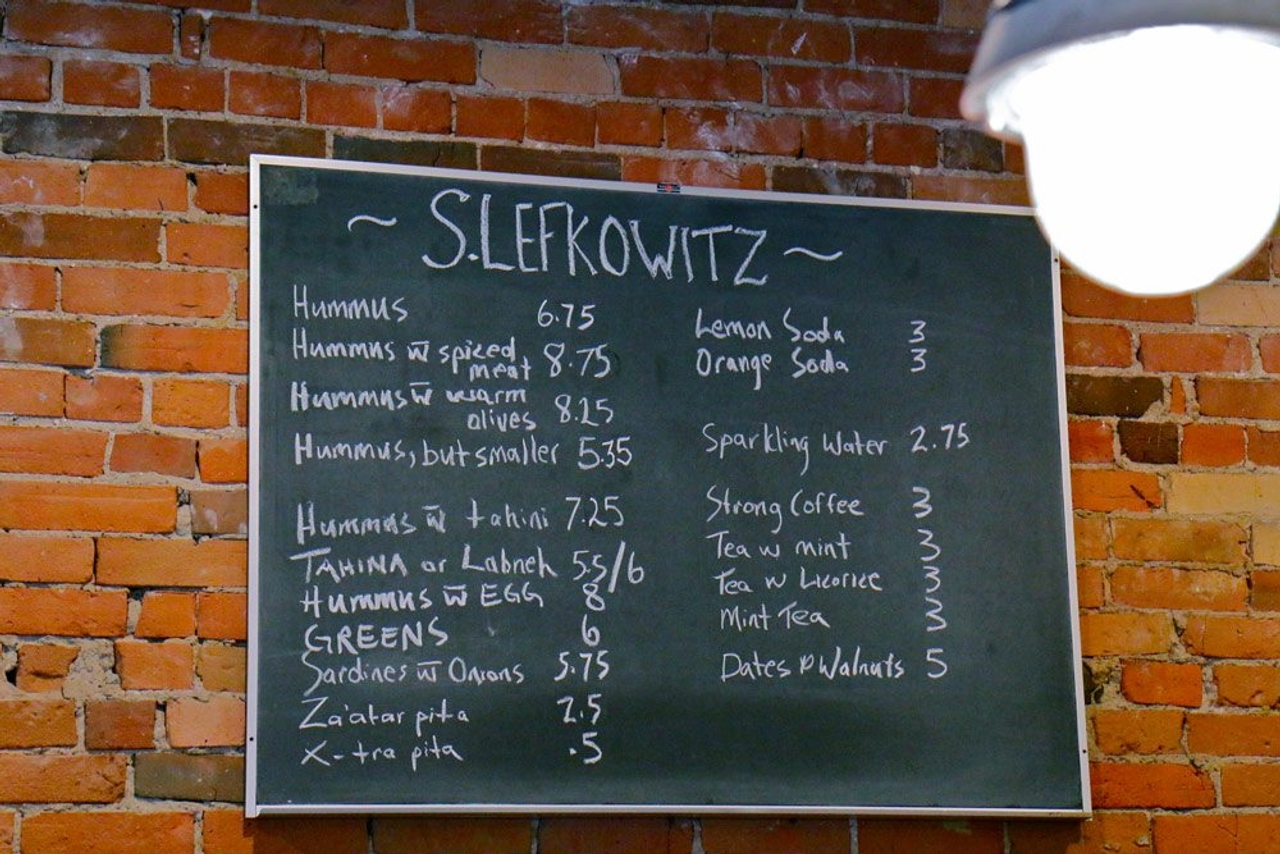 ~ S.LEFKOWITZ ~
Hummus 6.75
Hummus w̅ spiced meat 8.75
Hummus w̅ warm olives 8.25
Hummus, but smaller 5.35
Hummus w̅ tahini 7.25
TAHINA or Labneh 5.5/6
Hummus w̅ EGG 8
GREENS 6
Sardines w̅ Onions 5.75
Za'atar pita 2.5
X-tra pita .5
Lemon Soda 3
Orange Soda 3
Sparkling Water 2.75
Strong Coffee 3
Tea w mint 3
Tea w Licorice 3
Mint Tea 3
Dates Walnuts 5